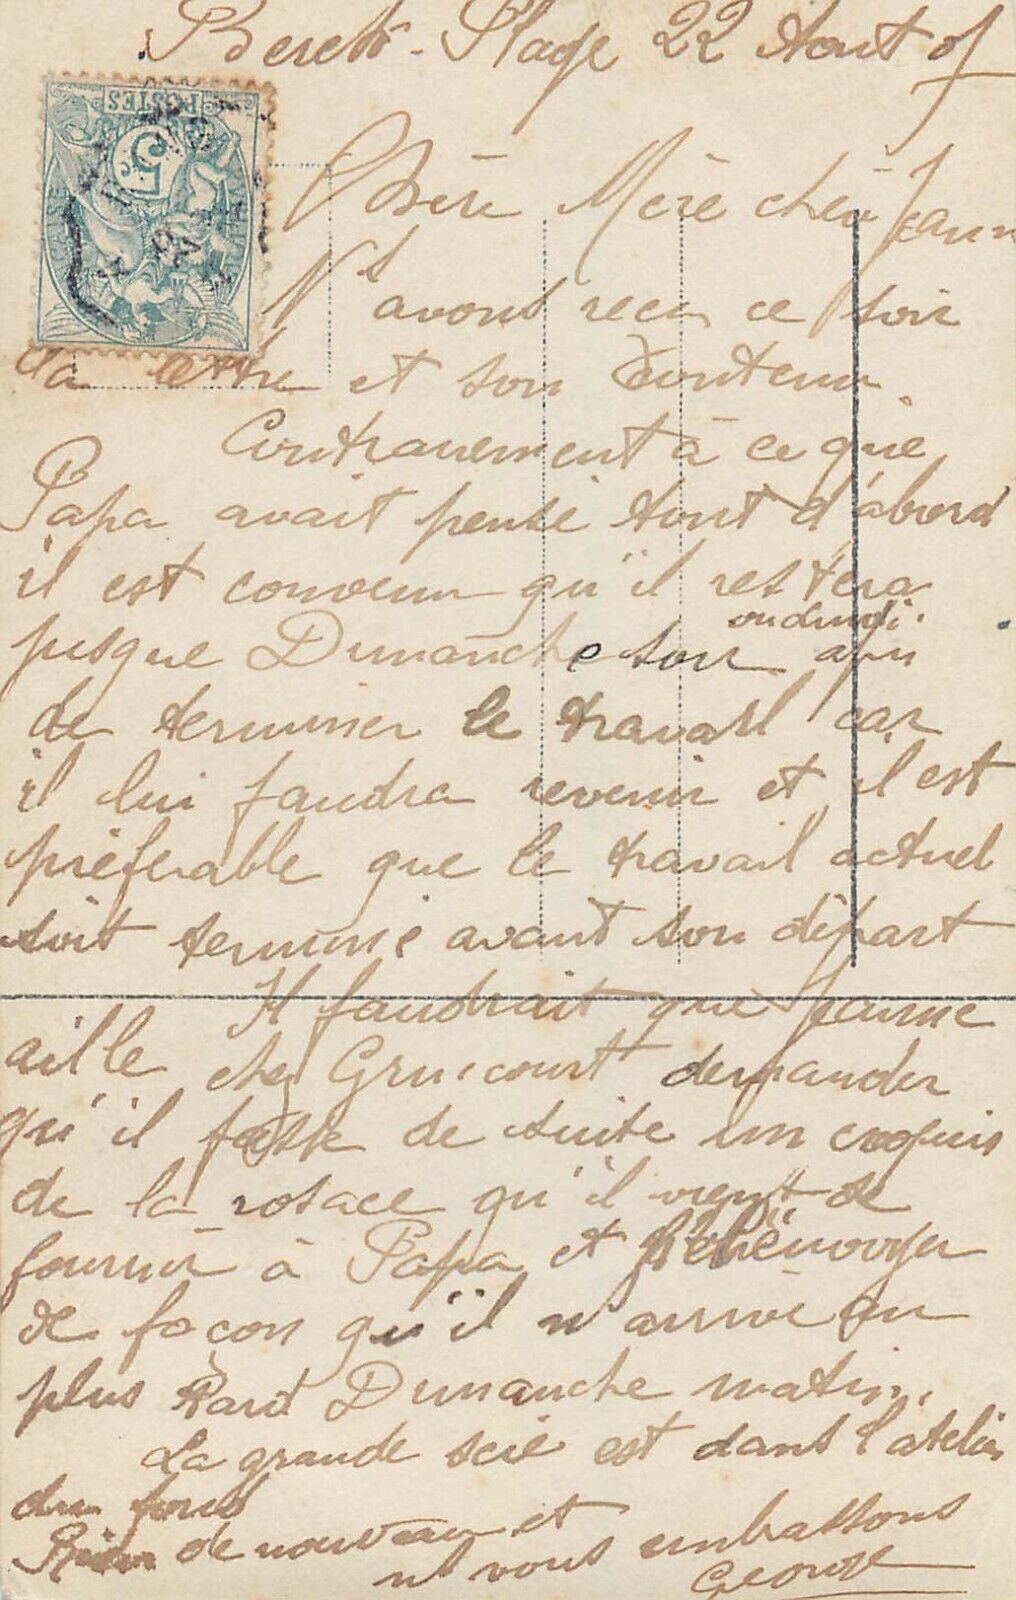 Berck-Plage 22 Aout 07
Chère Mère chère Jeanne
Ns avons reçu ce soir
la lettre et son contenu
Contrairement à ce que
Papa avait pensé tout d'abord
il est convenu qu'il restera
jusque Dimanche soir ou lundi afin
de terminer le travail car
il lui faudra revenir et il est
préférable que le travail actuel
soit terminé avant son départ
Il faudrait que Jeanne
aille chez demander
qu'il fasse de suite un croquis
de la rosace qu'il vient de
fournir à Papa et
de façon qu'il n'arrive au
plus tard Dimanche matin.
La grande scie est dans l'atelier
du fond
Rien de nouveau et
ns vous embrassons
George
POSTES
5